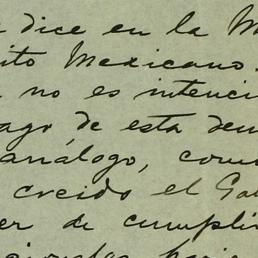 dice en la M
ito Mexicano.
no es intenci
ago de esta deu
análogo, com
creido el Go
er de cumpli